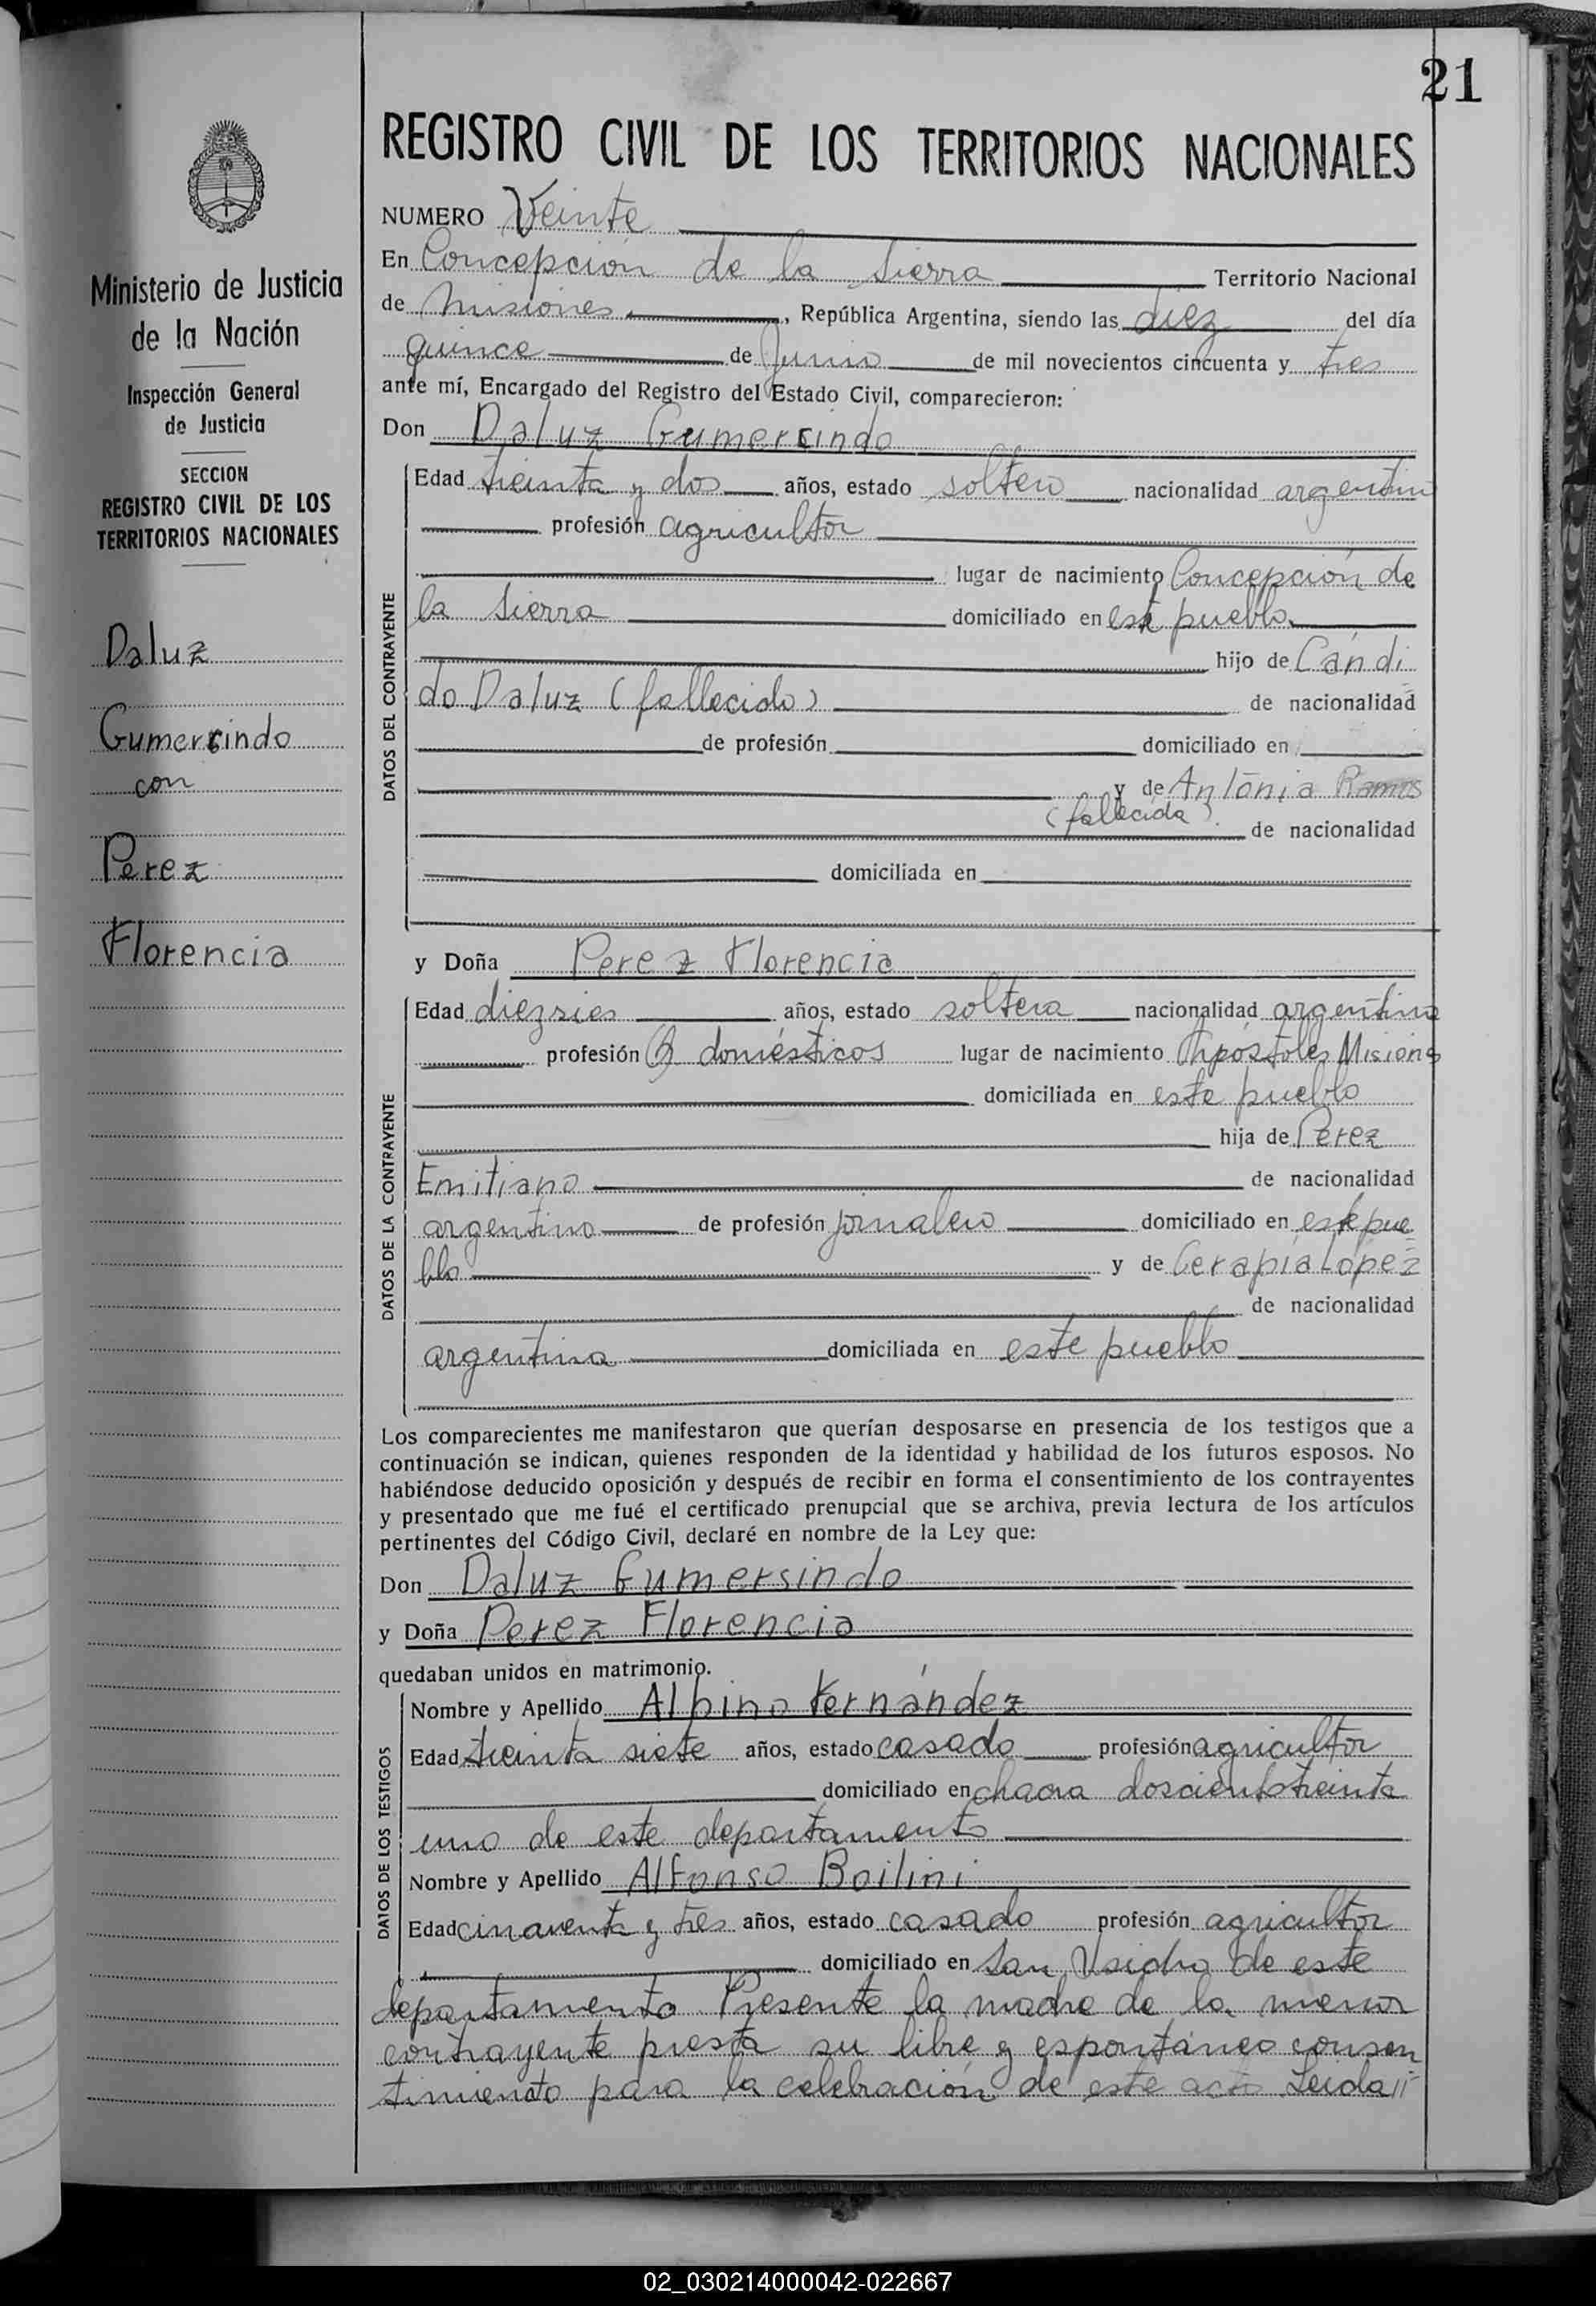 21
REGISTRO CIVIL DE LOS TERRITORIOS NACIONALES
Ministerio de Justicia
de la Nación
Inspección General
de Justicia
SECCION
REGISTRO CIVIL DE LOS
TERRITORIOS NACIONALES
Daluz
Gumersindo
con
Perez
Florencia
NUMERO Veinte
En Concepción de la Sierra Territorio Nacional
de Misiones, República Argentina, siendo las diez del día
quince de Junio de mil novecientos cincuenta y tres
ante mí, Encargado del Registro del Estado Civil, comparecieron:
Don Daluz Gumersindo
DATOS DEL CONTRAYENTE
Edad treinta y dos años, estado soltero nacionalidad argentino
profesión agricultor
lugar de nacimiento Concepción de
la Sierra domiciliado en este pueblo
hijo de Cándi
do Daluz (fallecido) de nacionalidad
de profesión domiciliado en
y de Antonia Ramos
(fallecida). de nacionalidad
domiciliada en
y Doña Perez Florencia
DATOS DE LA CONTRAYENTE
Edad diezsies años, estado soltera nacionalidad argentina
profesión Q domésticos lugar de nacimiento Apóstoles Misiones
domiciliada en este pueblo
hija de Perez
Emiliano de nacionalidad
argentino de profesión jornalero domiciliado en este pue
blo y de Cerapia López
de nacionalidad
argentina domiciliada en este pueblo
Los comparecientes me manifestaron que querían desposarse en presencia de los testigos que a
continuación se indican, quienes responden de la identidad y habilidad de los futuros esposos. No
habiéndose deducido oposición y después de recibir en forma el consentimiento de los contrayentes
y presentado que me fué el certificado prenupcial que se archiva, previa lectura de los artículos
pertinentes del Código Civil, declaré en nombre de la Ley que:
Don Daluz Gumersindo
y Doña Perez Florencia
quedaban unidos en matrimonio.
DATOS DE LOS TESTIGOS
Nombre y Apellido Albino Fernández
Edad treinta siete años, estado casado profesión agricultor
domiciliado en chacra doscientos treinta
uno de este departamento
Nombre y Apellido Alfonso Boilini
Edad cincuenta y tres años, estado casado profesión agricultor
domiciliado en San Ysidro de este
departamento Presente la madre de la menor
contrayente presta su libre y espontáneo consen
timiento para la celebración de este acto Leida //
02_030214000042-022667